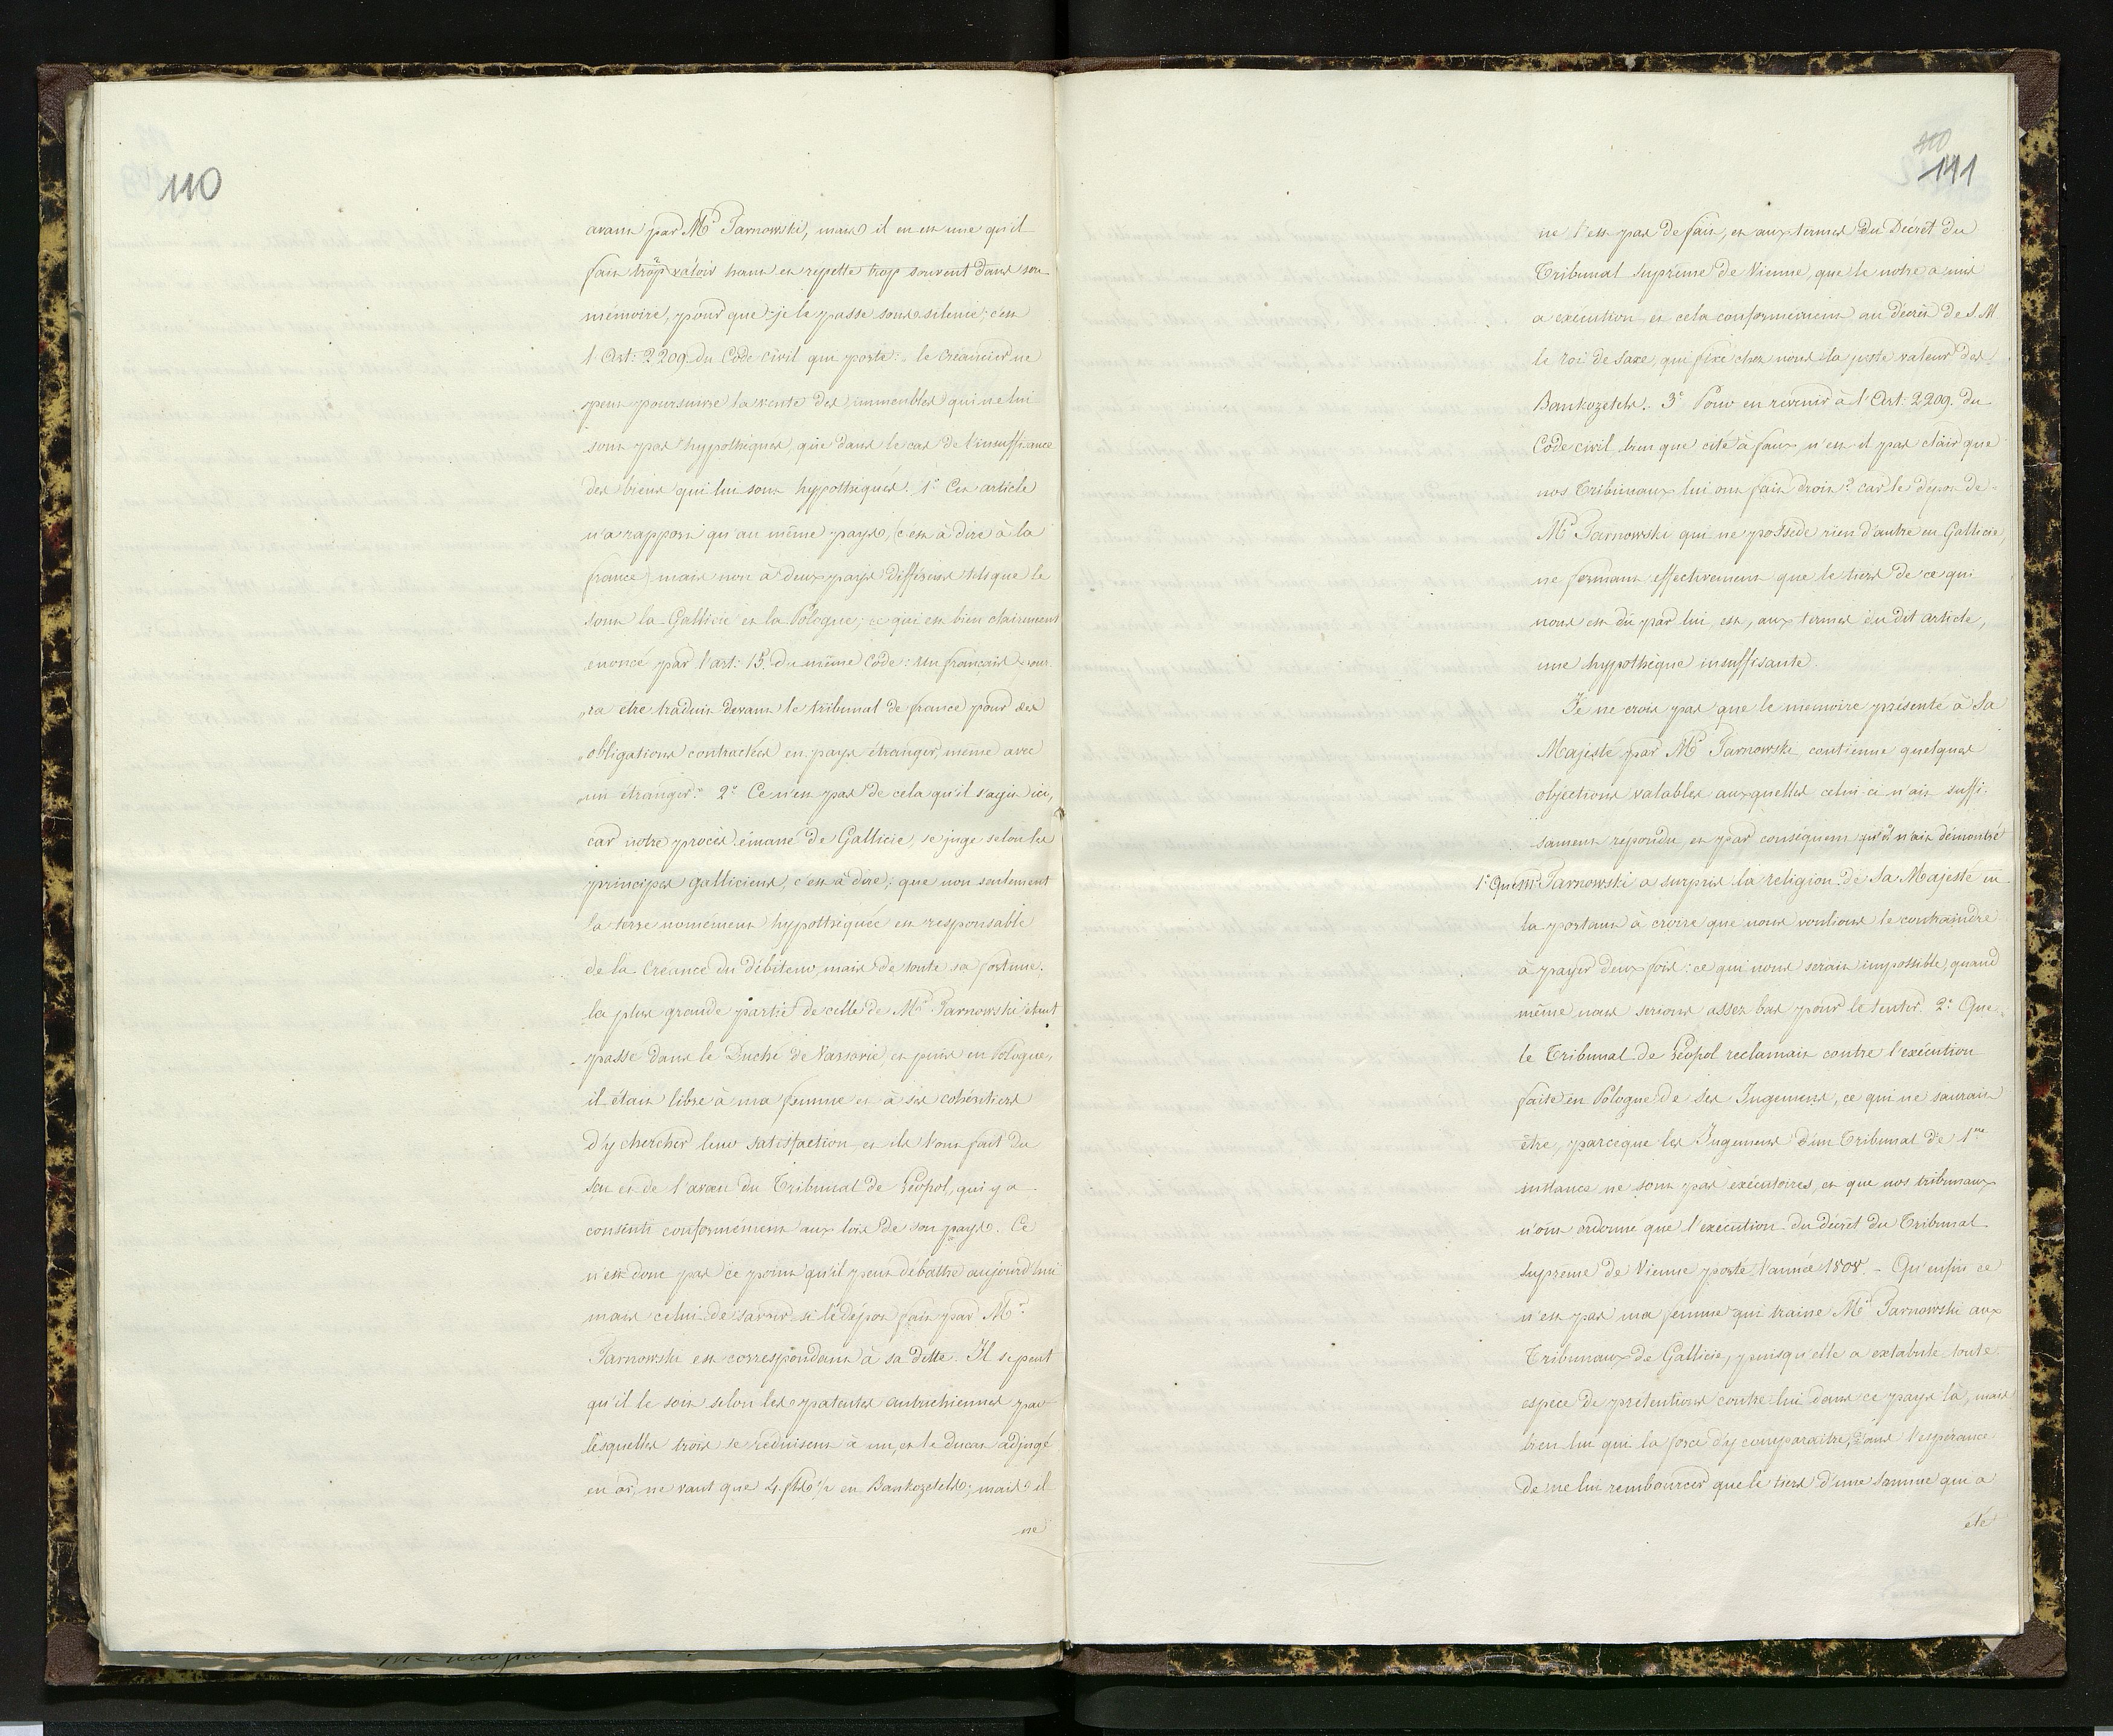 110
avant par Mr Tarnowski, mais il en est une qu'il
fait trop valoir haut et repette trop souvent dans son
mémoire, pour que je la passe sous silence; c'est
l'Art: 2209 du Code civil qui porte: „le Créancier ne
„peut poursuivre la vente des immeubles qui ne lui
sont pas hypothéqués, que dans le cas de l'insuffisance
des biens qui lui sont hypothéqués. 1° Cet article
n'a rapport qu'au même pays, (c'est à dire à la
france) mais non à deux pays différens tels que le
sont la Gallicie et la Pologne; ce qui est bien clairement
enoncé par l'art: 15. du même Code: un français pour-
„ra etre traduit devant le tribunal de france pour des
„obligations contractées en pays étranger, même avec
„un étranger." 2° Ce n'est pas de cela qu'il s'agit ici,
car notre procès émané de Gallicie, se juge selon les
principes galliciens, c'est à dire; que non seulement
la terre nomément hypothéquée est responsable
de la Créance du débiteur, mais de toute sa fortune.
la plus grande partie de celle de Mr Tarnowski étant
passé dans le Duché de Varsovie, et puis en Pologne,
il étoit libre à ma femme et à ses cohéritiers
d'y chercher leur satisfaction, et ils l'ont fait du
sçu et de l'aveu du Tribunal de Léopol, qui y a
consenti conformément aux loix de son pays. Ce
n'est donc pas ce point qu'il peut débattre aujourd'hui
mais celui de savoir si le dépot fait par Mr
Tarnowski est correspondant à sa dette. Il se peut
qu'il le soit selon les patentes autrichiennes par
lesquelles trois se réduisent à un, et le ducat adjugé
en or, ne vaut que 4 fls ½ en Bankozetels; mais il
ne
110
111
ne l'est pas de fait, et aux termes du Décret du
Tribunal suprême de Vienne, que le notre a mis
a exécution et cela conformément au décret de S. M
le roi de Saxe, qui fixe chez nous la juste valeur des
Bankozetels. 3° Pour en revenir à l'Art: 2209. du
Code civil, bien que cité à faux, n'est il pas clair que
nos Tribunaux lui ont fait droit? car le dépot de
Mr Tarnowski qui ne possède rien d'autre en Gallicie,
ne formant effectivement que le tiers de ce qui
nous est dû par lui, est, aux termes du dit article,
une hypothèque insuffisante.
Je ne crois pas que le mémoire présenté à Sa
Majesté par Mr Tarnowski contienne quelques
objections valables auxquelles celui-ci n'ait suffi-
sament repondu, et par conséquent qu'il n'ait démontré
1° Que Mr Tarnowski a surpris la religion de Sa Majesté en
la portant à croire que nous voulions le contraindre
à payer deux fois: ce qui nous serait impossible, quand
même nous serions assez bas pour le tenter. 2° Que
le Tribunal de Léopol reclamait contre l'exécution
faite en Pologne de ses Jugemens, ce qui ne saurait
être, parceque les Jugemens d'un Tribunal de 1re
instance ne sont pas exécutoires, et que nos tribunaux
n'ont ordonné que l'exécution du décret du Tribunal
supreme de Vienne porté l'année 1808. - Qu'enfin ce
n'est pas ma femme qui traine Mr Tarnowski aux
Tribunaux de Gallicie, puisqu'elle a extabulé toute
espece de prétentions contre lui dans ce pays là, mais
bien lui qui la force d'y comparaitre, dans l'espérance
de ne lui rembourcer que le tiers d'une somme qui a
été